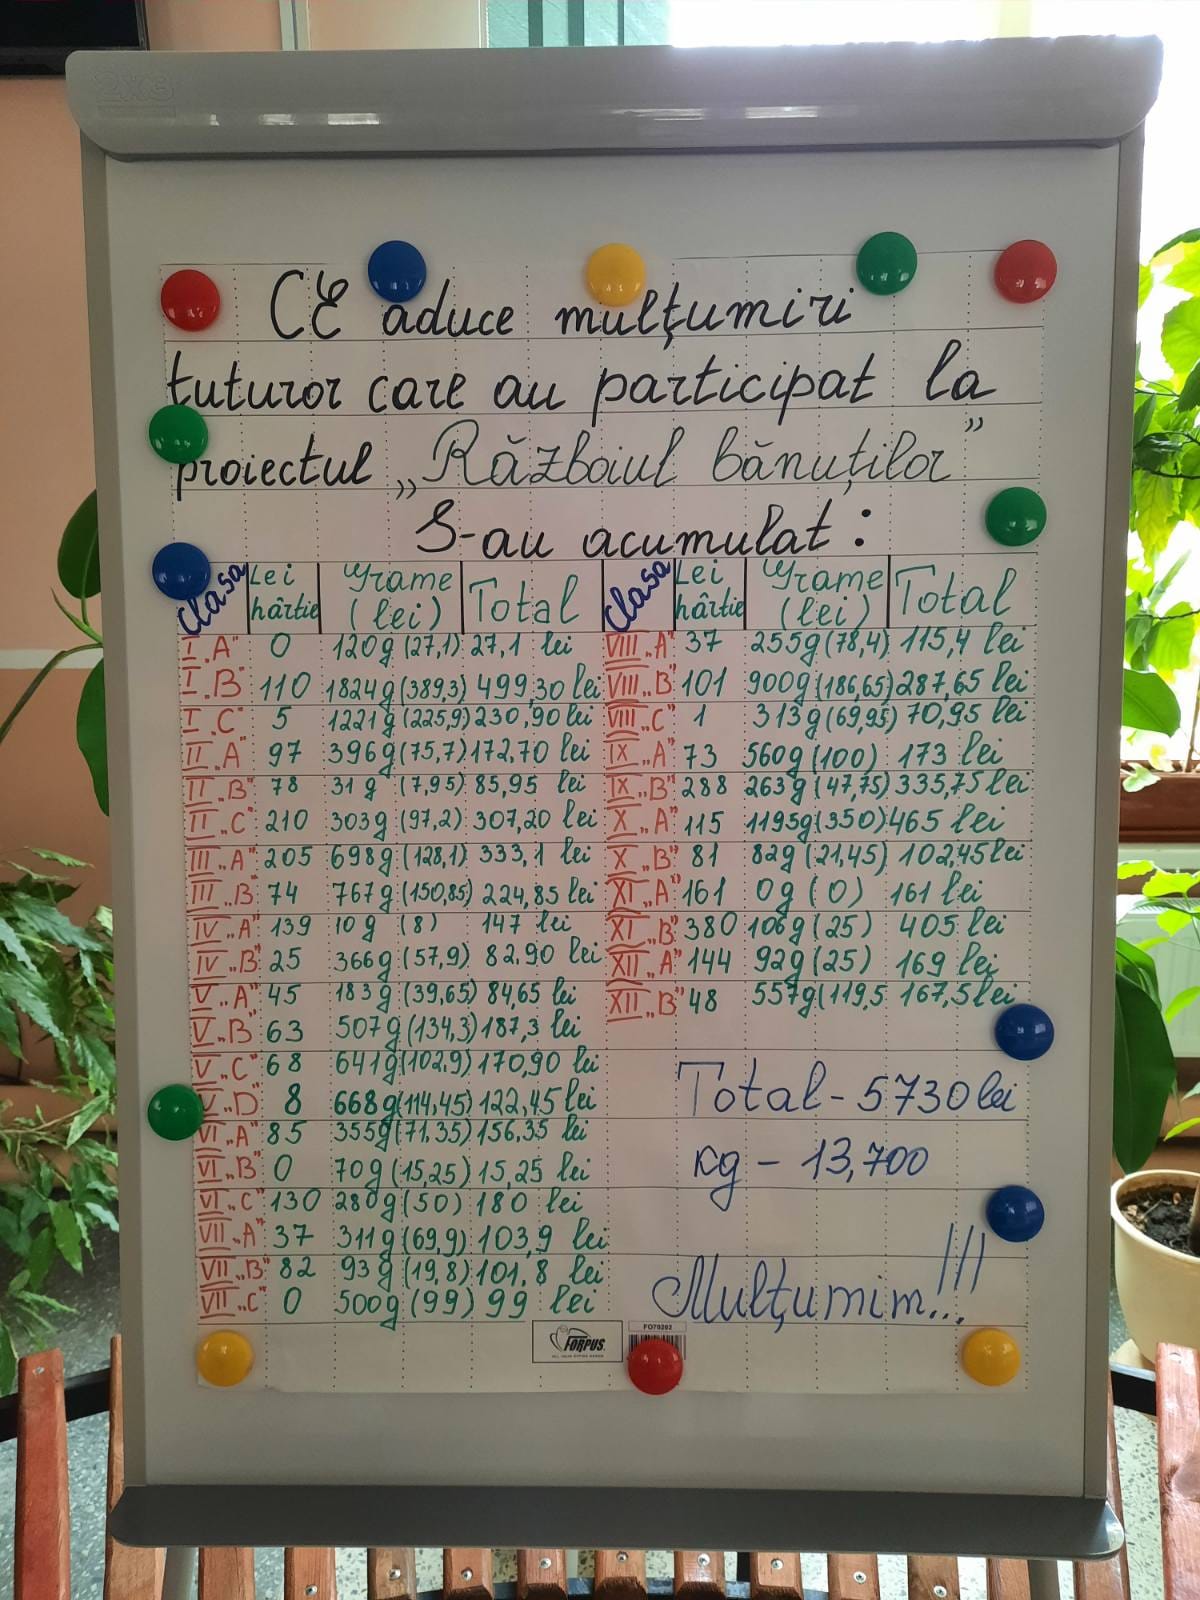 2x3
CE aduce mulțumiri
tuturor care au participat la
proiectul „Războiul bănuților”
S-au acumulat:
Clasa Lei hârtie Grame (lei) Total Clasa Lei hârtie Grame (lei) Total
I „A” 0 120g (27,1) 27,1 lei VIII „A” 37 255g (78,4) 115,4 lei
I „B” 110 1824g (389,3) 499,30 lei VIII „B” 101 900g (186,65) 287,65 lei
I „C” 5 1221g (225,9) 230,90 lei VIII „C” 1 313g (69,95) 70,95 lei
II „A” 97 396g (75,7) 172,70 lei IX „A” 73 560g (100) 173 lei
II „B” 78 31g (7,95) 85,95 lei IX „B” 288 263g (47,75) 335,75 lei
II „C” 210 303g (97,2) 307,20 lei X „A” 115 1195g (350) 465 lei
III „A” 205 698g (128,1) 333,1 lei X „B” 81 82g (21,45) 102,45 lei
III „B” 74 767g (150,85) 224,85 lei XI „A” 161 0g (0) 161 lei
IV „A” 139 10g (8) 147 lei XI „B” 380 106g (25) 405 lei
IV „B” 25 366g (57,9) 82.90 lei XII „A” 144 92g (25) 169 lei
V „A” 45 183g (39,65) 84,65 lei XII „B” 48 557g (119,5 167,5 lei
V „B” 63 507g (134,3) 187,3 lei
V „C” 68 641g (102,9) 170,90 lei
V „D” 8 668g (114,45) 122,45 lei
VI „A” 85 355g (71,35) 156,35 lei
VI „B” 0 70g (15,25) 15,25 lei
VI „C” 130 280g (50) 180 lei
VII „A” 37 311g (69,9) 103,9 lei
VII „B” 82 93g (19,8) 101,8 lei
VII „C” 0 500g (99) 99 lei
Total - 5730 lei
kg - 13,700
Mulțumim!!!
FORPUS
FO70202